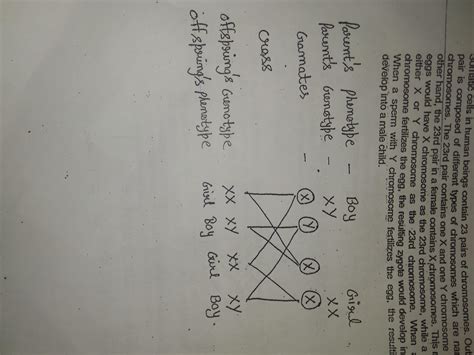 somatic cells in human beings contain 23 pairs of chromosomes.
pair is composed of different types of chromosomes which are na
chromosomes. The 23rd pair contains one X and one Y chromosome
other hand, the 23rd pair in a female contains X chromosomes. This
eggs would have X chromosome as the 23rd chromosome, while a
either X or Y chromosome as the 23rd chromosome. When
chromosome fertilizes the egg, the resulting zygote would develop in
When a sperm with Y chromosome fertilizes the egg, the result
develop into a male child.
Parent's phenotype - Boy Girl
Parent's Genotype - XY XX
Gamates - X Y X X
Cross
offspring's Genotype XX XY XX XY
offspring's phenotype Girl Boy Girl Boy.